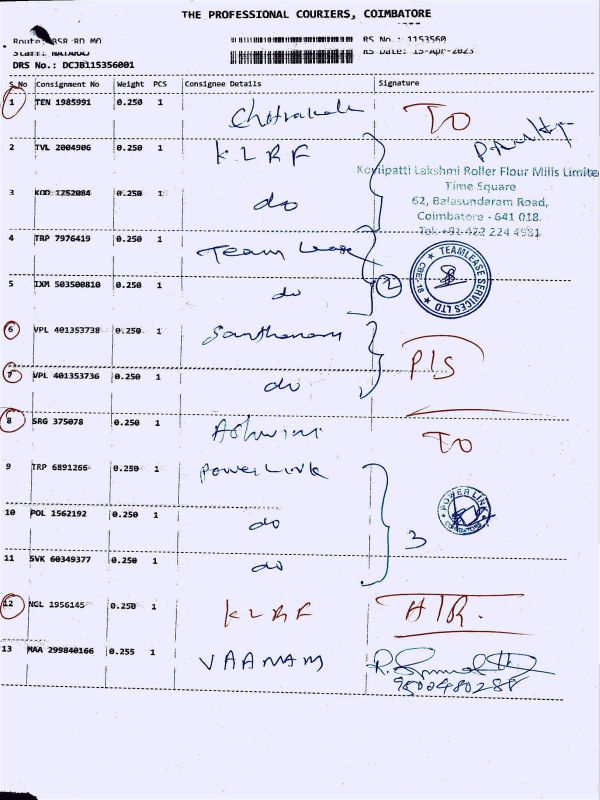 THE PROFESSIONAL COURIERS, COIMBATORE
Route: BSR RD MO RS No.: 1153560
Staff: NATARAJ RS Date: 15-Apr-2023
DRS No.: DCJB115356001
S.No Consignment No Weight PCS Consignee Details Signature
1 TEN 1985991 0.250 1 TO
2 TVL 2004906 0.250 1 KLRF
Kovilpatti Lakshmi Roller Flour Mills Limite
Time Square
62, Balasundaram Road,
Coimbatore - 641 018.
Tel. +91 422 224 4981
3 KOD 1252084 0.250 1 do
4 TRP 7976419 0.250 1 Team Lease
TEAMLEASE SERVICES LTD CBE-18
5 IXM 503500810 0.250 1 do 2
6 VPL 401353738 0.250 1 Santhanam
P/S
7 VPL 401353736 0.250 1 do
8 SRG 375078 0.250 1 Ashwini TO
9 TRP 6891266 0.250 1 Power Link
POWER LINK COIMBATORE
10 POL 1562192 0.250 1 do
3
11 SVK 60349377 0.250 1 do
12 NGL 1956145 0.250 1 KLRF A/R.
13 MAA 299840166 0.255 1 VAANAM